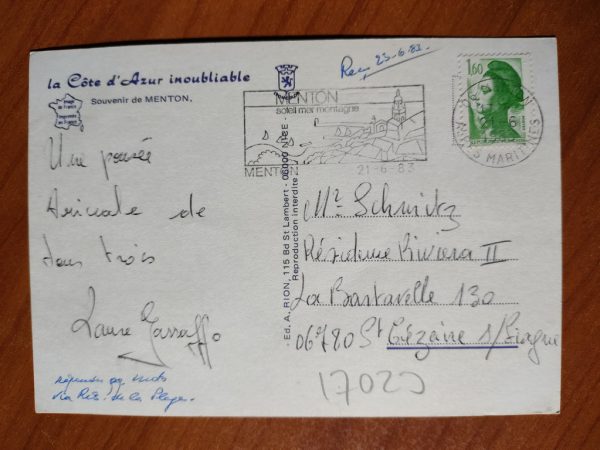 la Côte d'Azur inoubliable
Souvenir de MENTON,
Image de France
Imprimée en France
Une pensée
Amicale de
tous trois
Laure
Reçu 23-6-83
MENTON
soleil mer montagne
MENTON
21-6-83
1,60
MENTON
MARITIMES
- Ed. A. RION, 115 Bd St Lambert - 06000 NICE -
Reproduction interdite
Mr Schmitz
Résidence Riviera II
La Bastarelle 130
06780 St Cézaire s/Siagne
17025